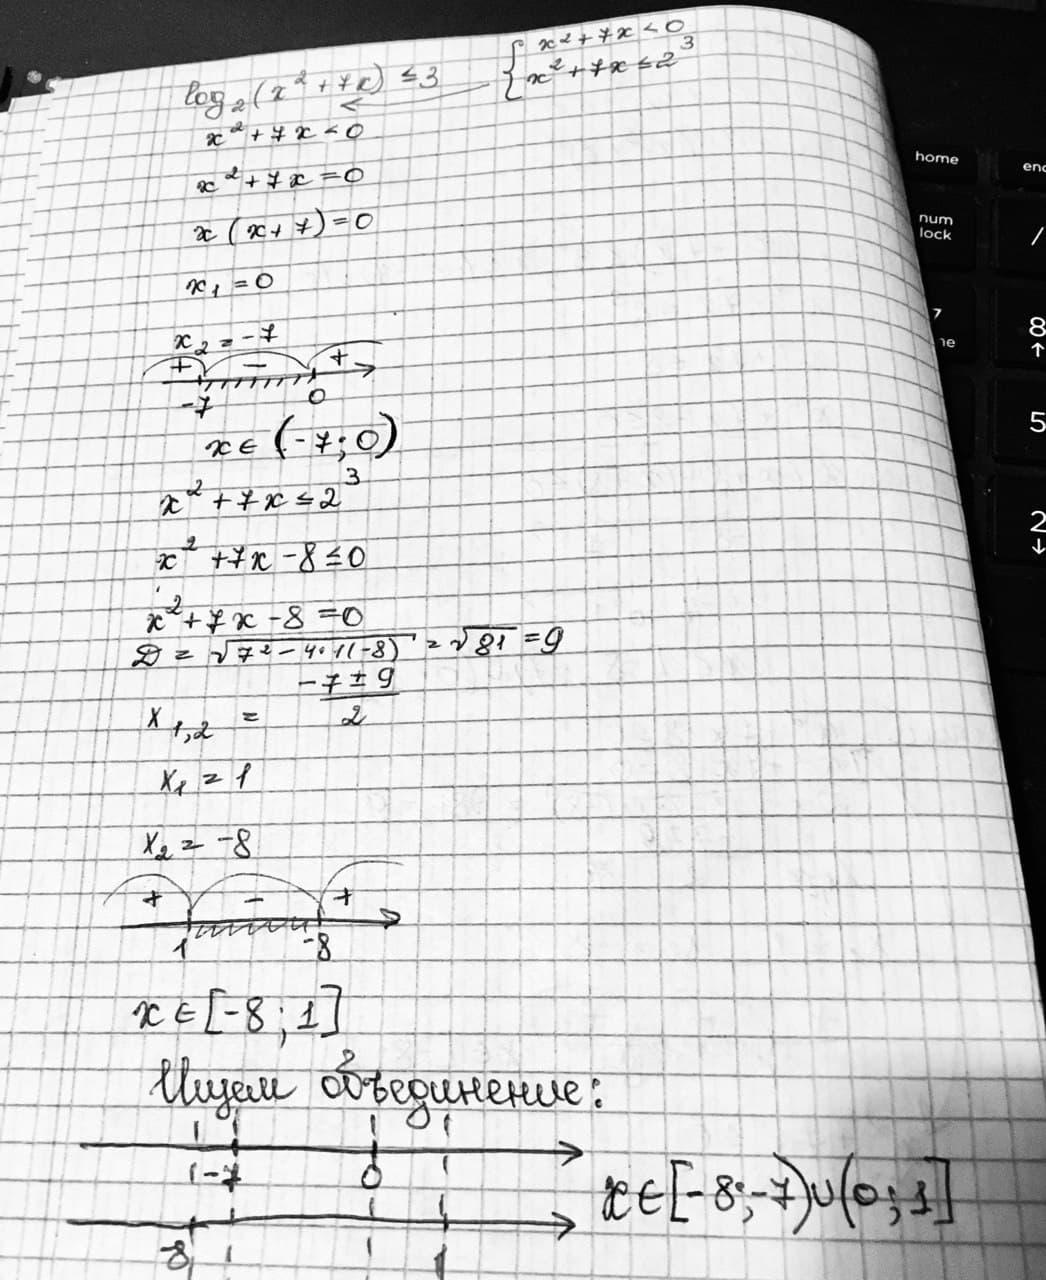 log₂(x² + 7x) ≤ 3
{ x² + 7x < 0
x² + 7x ≤ 2³
x² + 7x < 0
x² + 7x = 0
x(x + 7) = 0
x₁ = 0
x₂ = -7
+ - +
-7 0
x ∈ (-7; 0)
x² + 7x ≤ 2³
x² + 7x - 8 ≤ 0
x² + 7x - 8 = 0
D = √7² - 4·1(-8) = √81 = 9
x₁,₂ = (-7 ± 9)/2
x₁ = 1
x₂ = -8
+ - +
1 -8
x ∈ [-8; 1]
Ищем объединение:
-7 0
x ∈ [-8; -7) ∪ (0; 1]
-8 1
home
end
num
lock
/
7
8
↑
5
2
↓